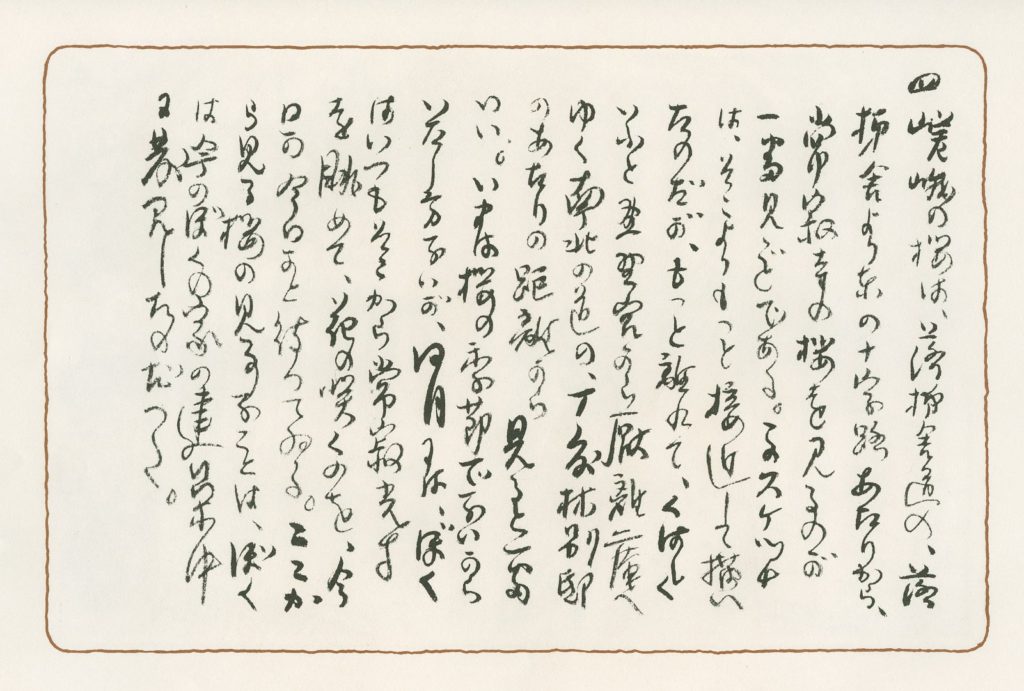 四 嵯峨の桜は、落柿舎道の、落
柿舎より東の十字路あたりから、
常寂寺の桜を見るのが
一番見ごとである。このスケッチ
は、そこよりもつと接近して描い
たのだが、もつと離れて、くはしく
いふと野々宮から厭離庵へ
ゆく南北の道の、丁度林別邸
のあたりの距離から見ると一番
いい。いまは桜の季節でないから
いたし方ないが、四月には、ぼく
はいつもそこから常寂光寺
を眺めて、花の咲くのを、今
日か今日かと待つてゐる。ここか
ら見る桜の見事なことは、ぼく
は
のぼくの家の建
に発見したのだつた。